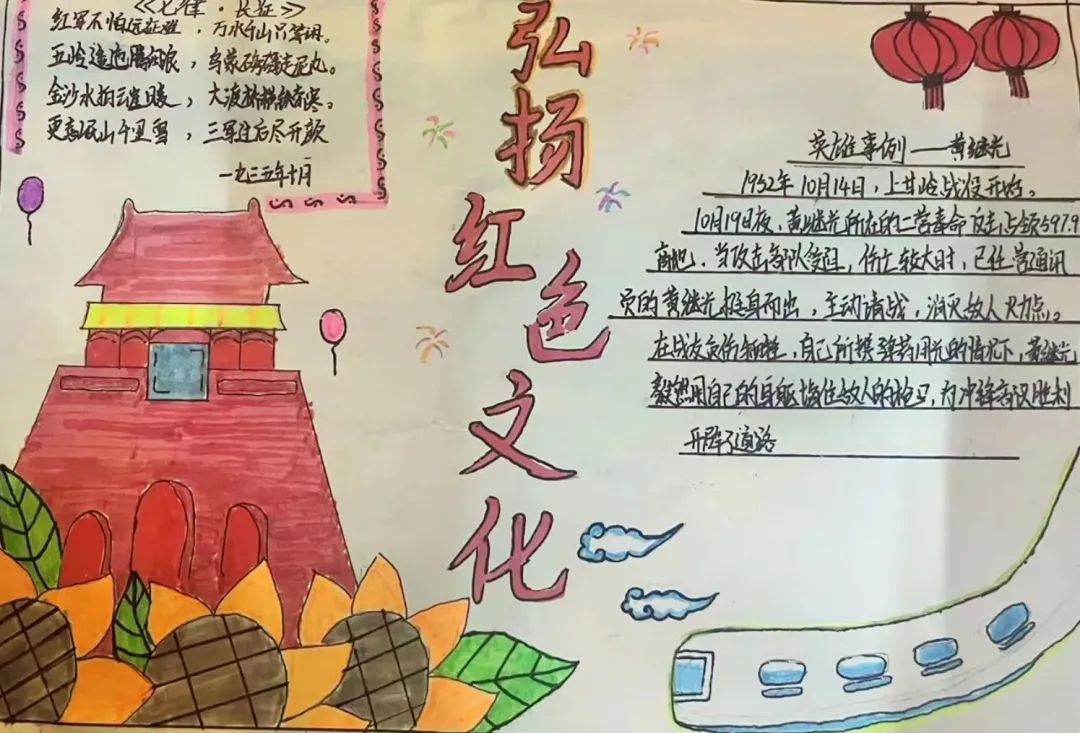 《七律·长征》
红军不怕远征难，万水千山只等闲。
五岭逶迤腾细浪，乌蒙磅礴走泥丸。
金沙水拍云崖暖，大渡桥横铁索寒。
更喜岷山千里雪，三军过后尽开颜
一九三五年十月
弘扬
红色
文化
英雄事例——黄继光
1952年10月14日，上甘岭战役开始。
10月19日夜，黄继光所在的二营奉命反击占领597.9
高地，当攻击部队受阻，伤亡较大时，已任营通讯
员的黄继光挺身而出，主动请战，消灭敌人火力点。
在战友负伤牺牲，自己所携弹药用光的情况下，黄继光
毅然用自己的身躯堵住敌人的枪口，为冲锋部队胜利
开辟了道路